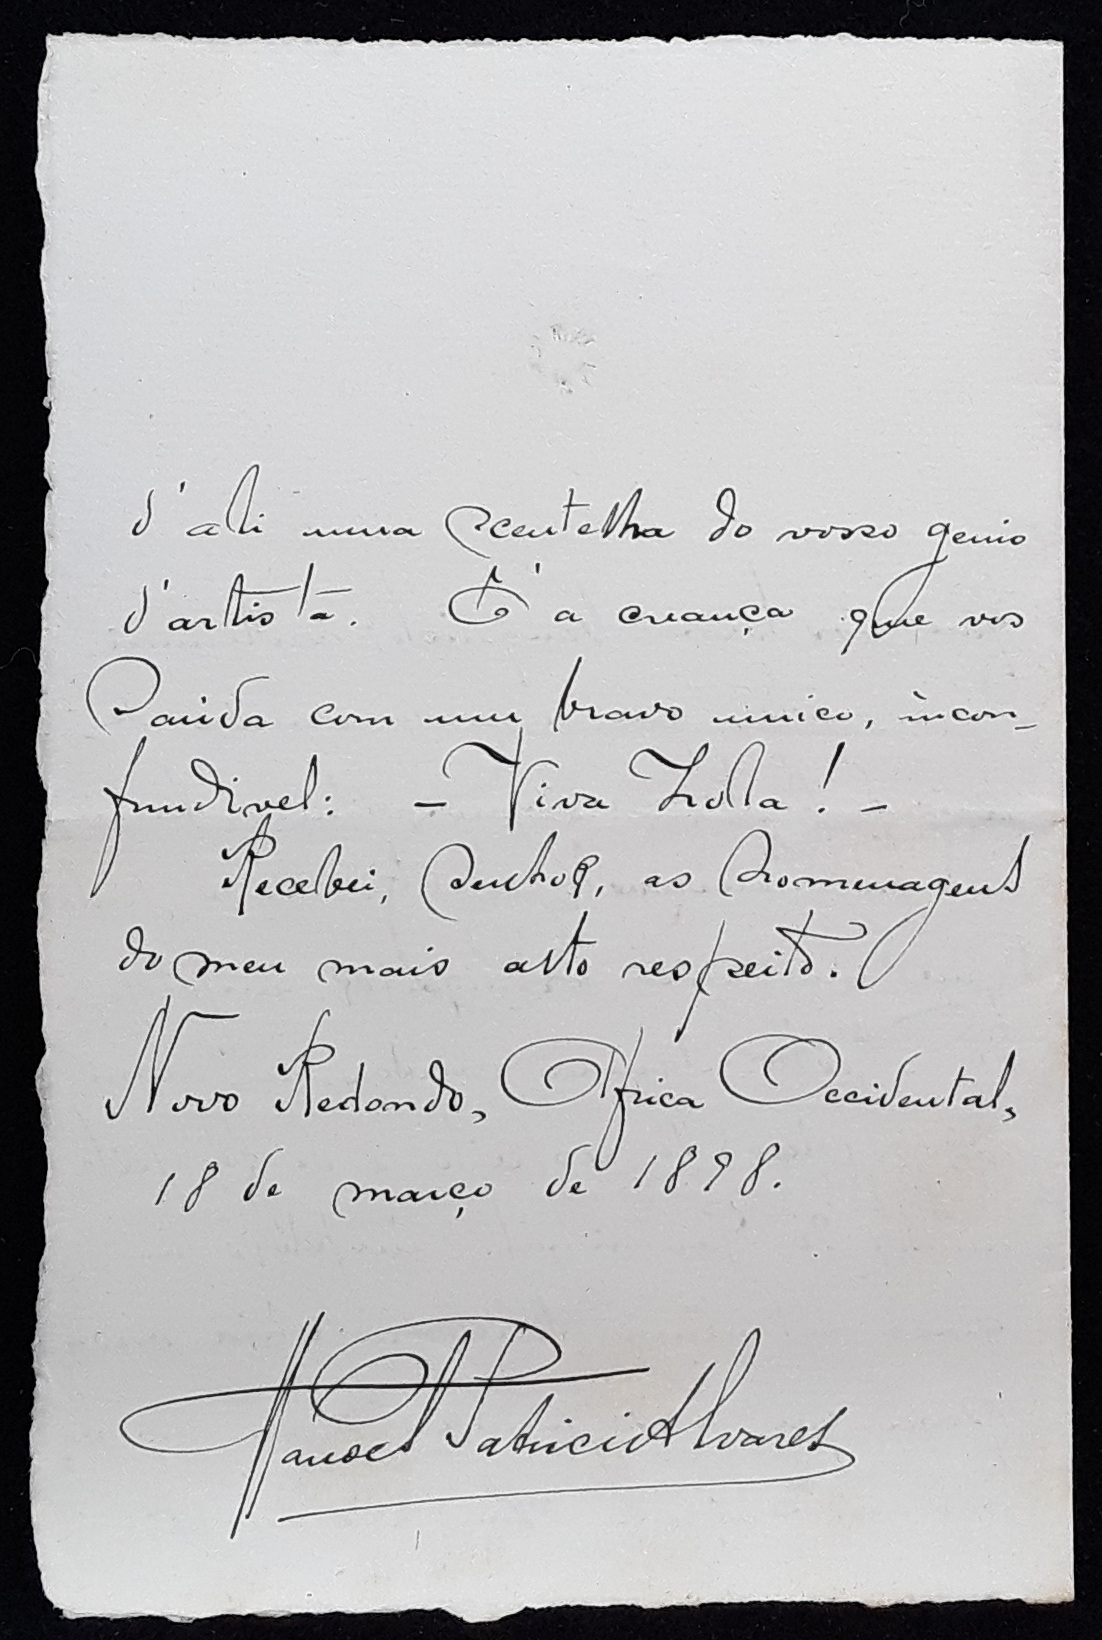 d'ali uma scentelha do vosso genio
d'artista. É a creança que vos
saúda com um bravo unico, incon-
fundivel: - Viva Zola! -
Recebei, Senhor, as homenagens
do meu mais alto respeito.
Novo Redondo, Africa Occidental,
18 de março de 1898.
Manoel Patricio Alvares